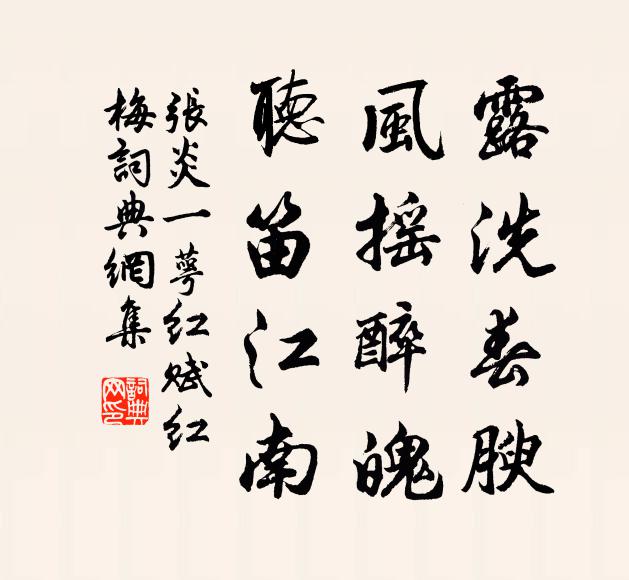 露洗春腴
風摇醉魄
聽笛江南
張炎一萼紅賦紅
梅詞典網集
詞典
网印